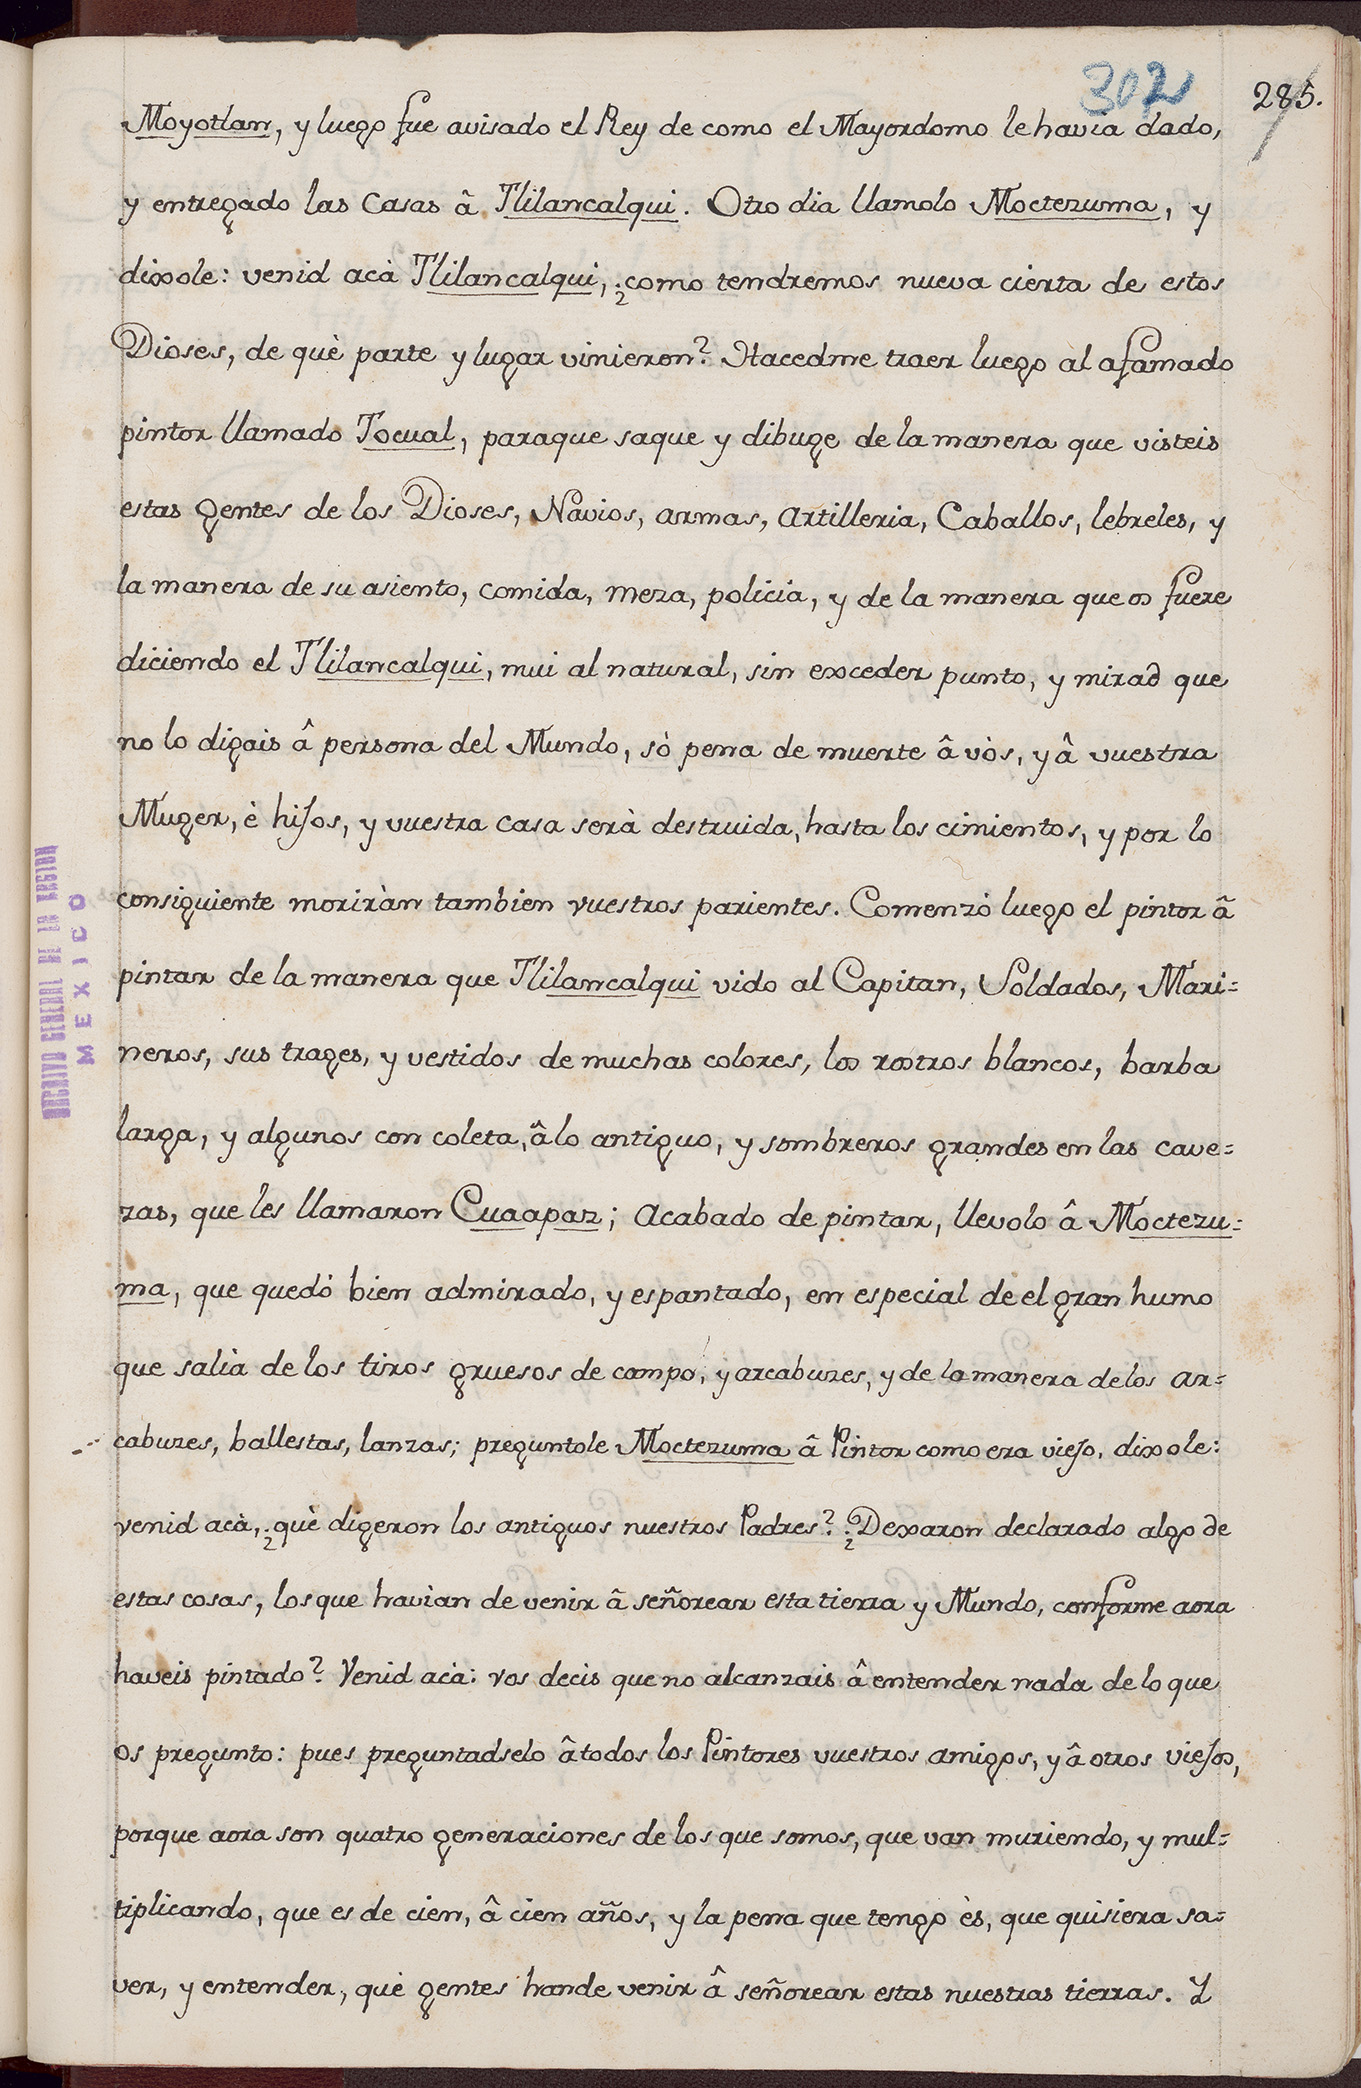 302
285.
Moyotlan, y luego fue avisado el Rey de como el Mayordomo le havia dado,
y entregado las Casas â Tlilancalqui. Otro dia llamolo Moctezuma, y
dixole: venid acà Tlilancalqui, ¿como tendremos nueva cierta de estos
Dioses, de què parte y lugar vinieron? Hacedme traer luego al afamado
pintor llamado Tocual, paraque saque y dibuge de la manera que visteis
estas gentes de los Dioses, Navios, armas, Artilleria, Caballos, lebreles, y
la manera de su asiento, comida, meza, policia, y de la manera que os fuere
diciendo el Tlilancalqui, mui al natural, sin exceder punto, y mirad que
no lo digais â persona del Mundo, sò pena de muerte â vòs, y â vuestra
Muger, è hijos, y vuestra casa serà destruida, hasta los cimientos, y por lo
consiguiente moriràn tambien vuestros parientes. Comenzò luego el pintor â
pintar de la manera que Tlilancalqui vido al Capitan, Soldados, Mari=
neros, sus trages, y vestidos de muchas colores, los rostros blancos, barba
larga, y algunos con coleta, â lo antiguo, y sombreros grandes en las cave=
zas, que les llamaron Cuaapaz; Acabado de pintar, llevolo â Moctezu=
ma, que quedò bien admirado, y espantado, en especial de el gran humo
que salìa de los tiros gruesos de campo, y arcabuzes, y de la manera de los ar=
cabuzes, ballestas, lanzas; preguntole Moctezuma â Pintor como era viejo, dixole:
venid acà, ¿què digeron los antiguos nuestros Padres? ¿Dexaron declarado algo de
estas cosas, los que havìan de venir â señorear esta tierra y Mundo, conforme aora
haveis pintado? Venid acà: vos decis que no alcanzais â entender nada de lo que
os pregunto: pues preguntadselo â todos los Pintores vuestros amigos, y â otros viejos,
porque aora son quatro generaciones de los que somos, que van muriendo, y mul=
tiplicando, que es de cien, â cien años, y la pena que tengo ès, que quisiera sa=
ver, y entender, què gentes hande venir â señorear estas nuestras tierras. Y
ARCHIVO GENERAL DE LA NACION
MEXICO